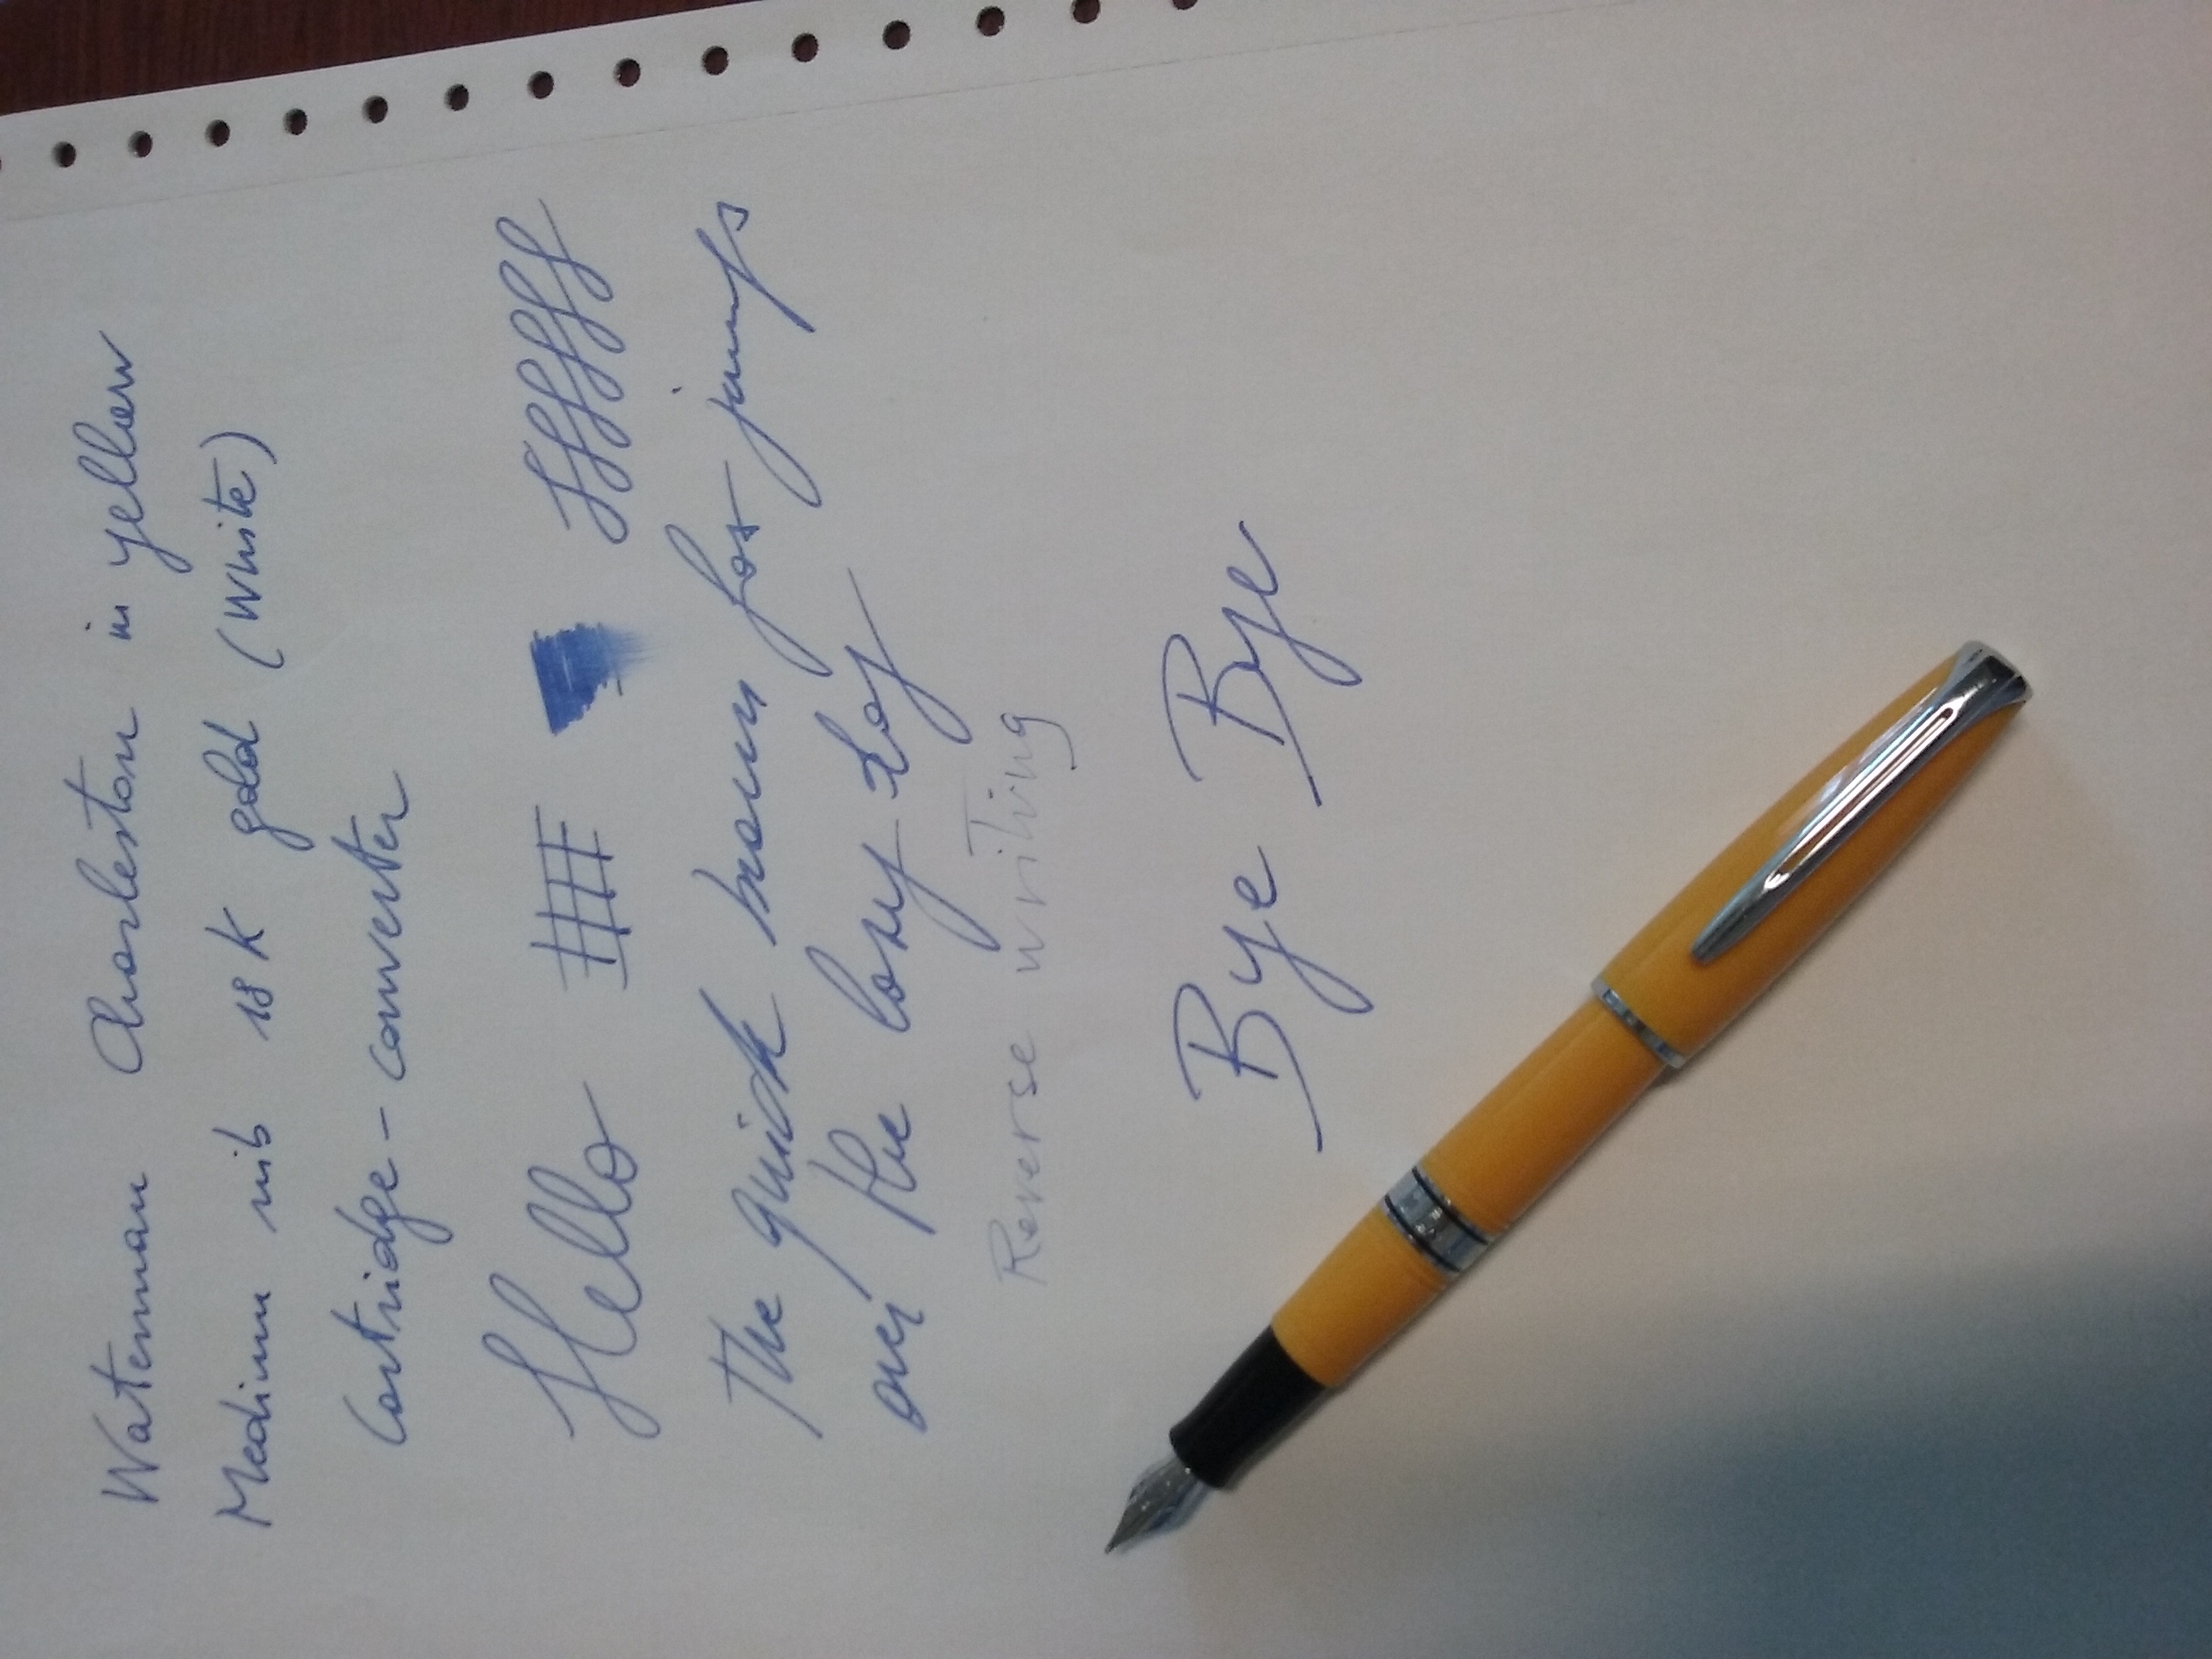 Waterman Charleston in yellow
Medium nib 18 K gold (white)
Cartridge - converter
Hello
The quick brown fox jumps
over the lazy dog
Reverse writing
Bye Bye